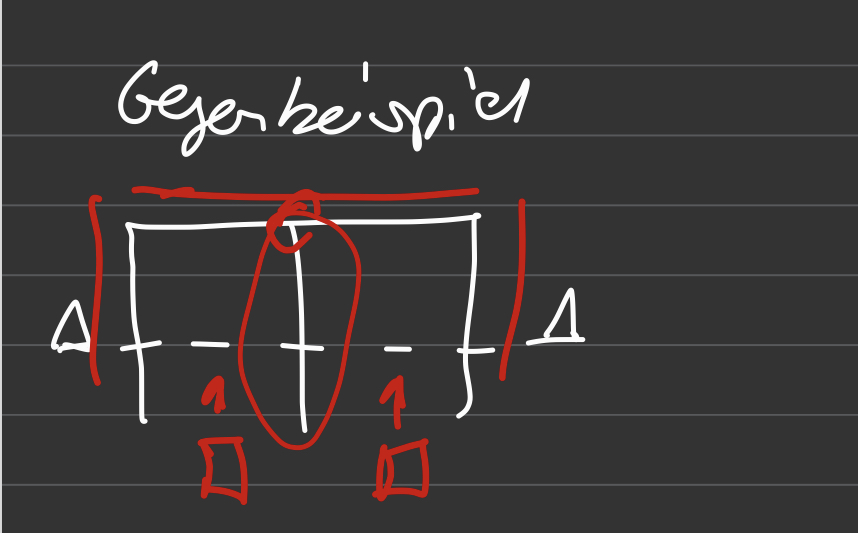 Gegenbeispiel
Δ Δ